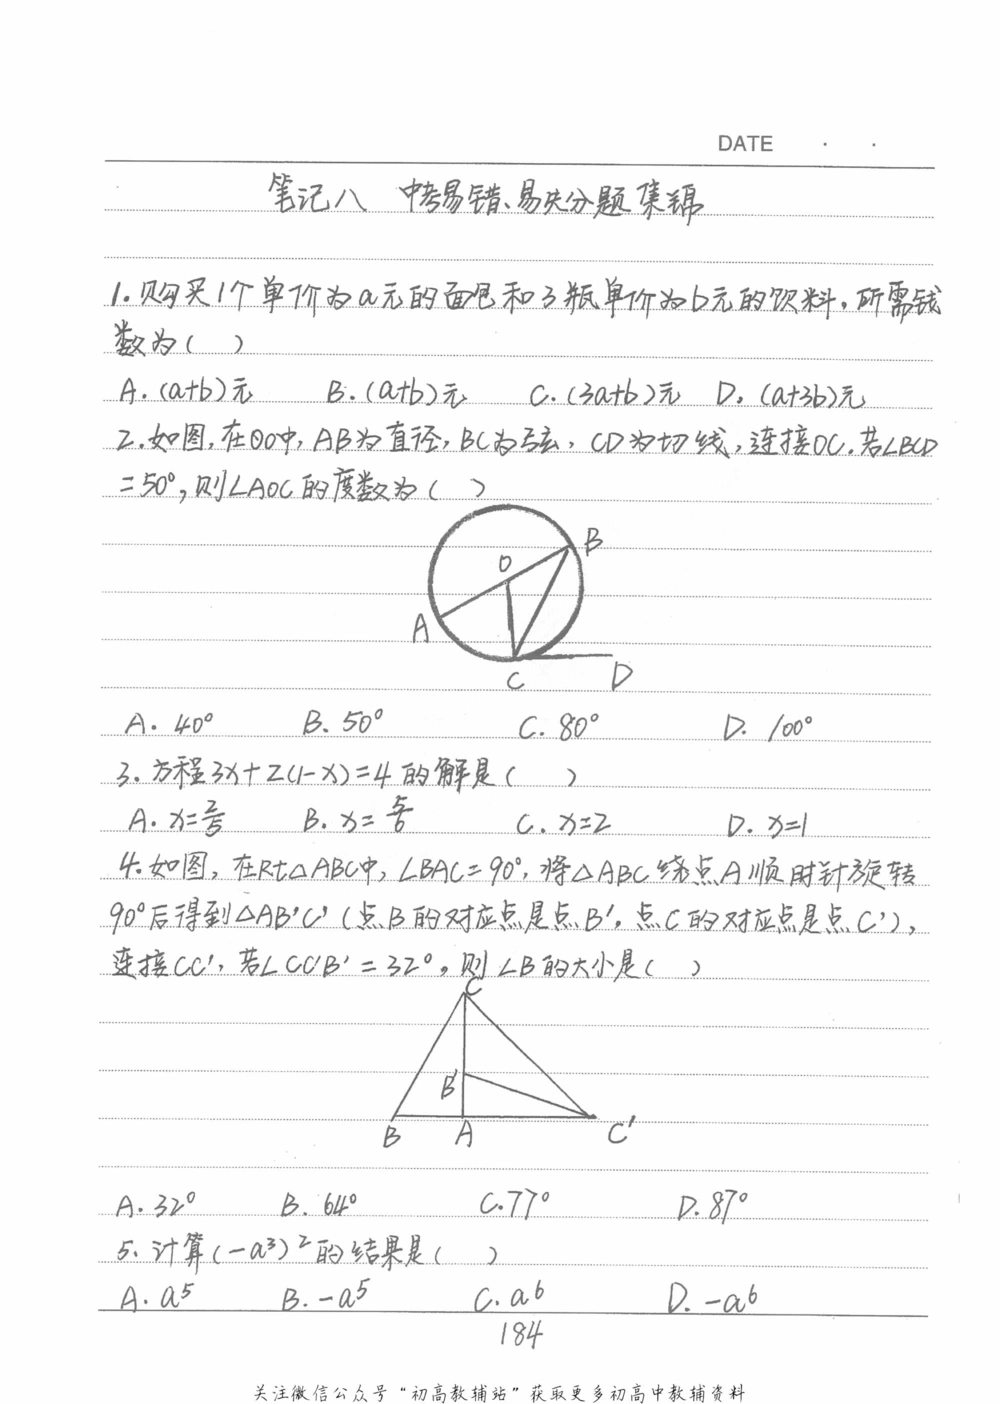 DATE · ·
笔记八 中考易错、易失分题集锦
1.购买1个单价为a元的面包和3瓶单价为b元的饮料,所需钱
数为( )
A.(a+b)元 B.(a+b)元 C.(3a+b)元 D.(a+3b)元
2.如图,在⊙O中,AB为直径,BC为弦,CD为切线,连接OC.若∠BCD
=50°,则∠AOC的度数为( )
B
O
A
C
D
A. 40° B. 50° C. 80° D. 100°
3.方程3x+2(1-x)=4的解是( )
A. x=2/5 B. x=5/6 C. x=2 D. x=1
4.如图,在Rt△ABC中,∠BAC=90°,将△ABC绕点A顺时针旋转
90°后得到△AB'C'(点B的对应点是点B',点C的对应点是点C'),
连接CC',若∠CC'B'=32°,则∠B的大小是( )
C
B'
B A C'
A. 32° B. 64° C. 77° D. 87°
5.计算(-a³)²的结果是( )
A. a⁵ B. -a⁵ C. a⁶ D. -a⁶
184
关注微信公众号“初高教辅站”获取更多初高中教辅资料